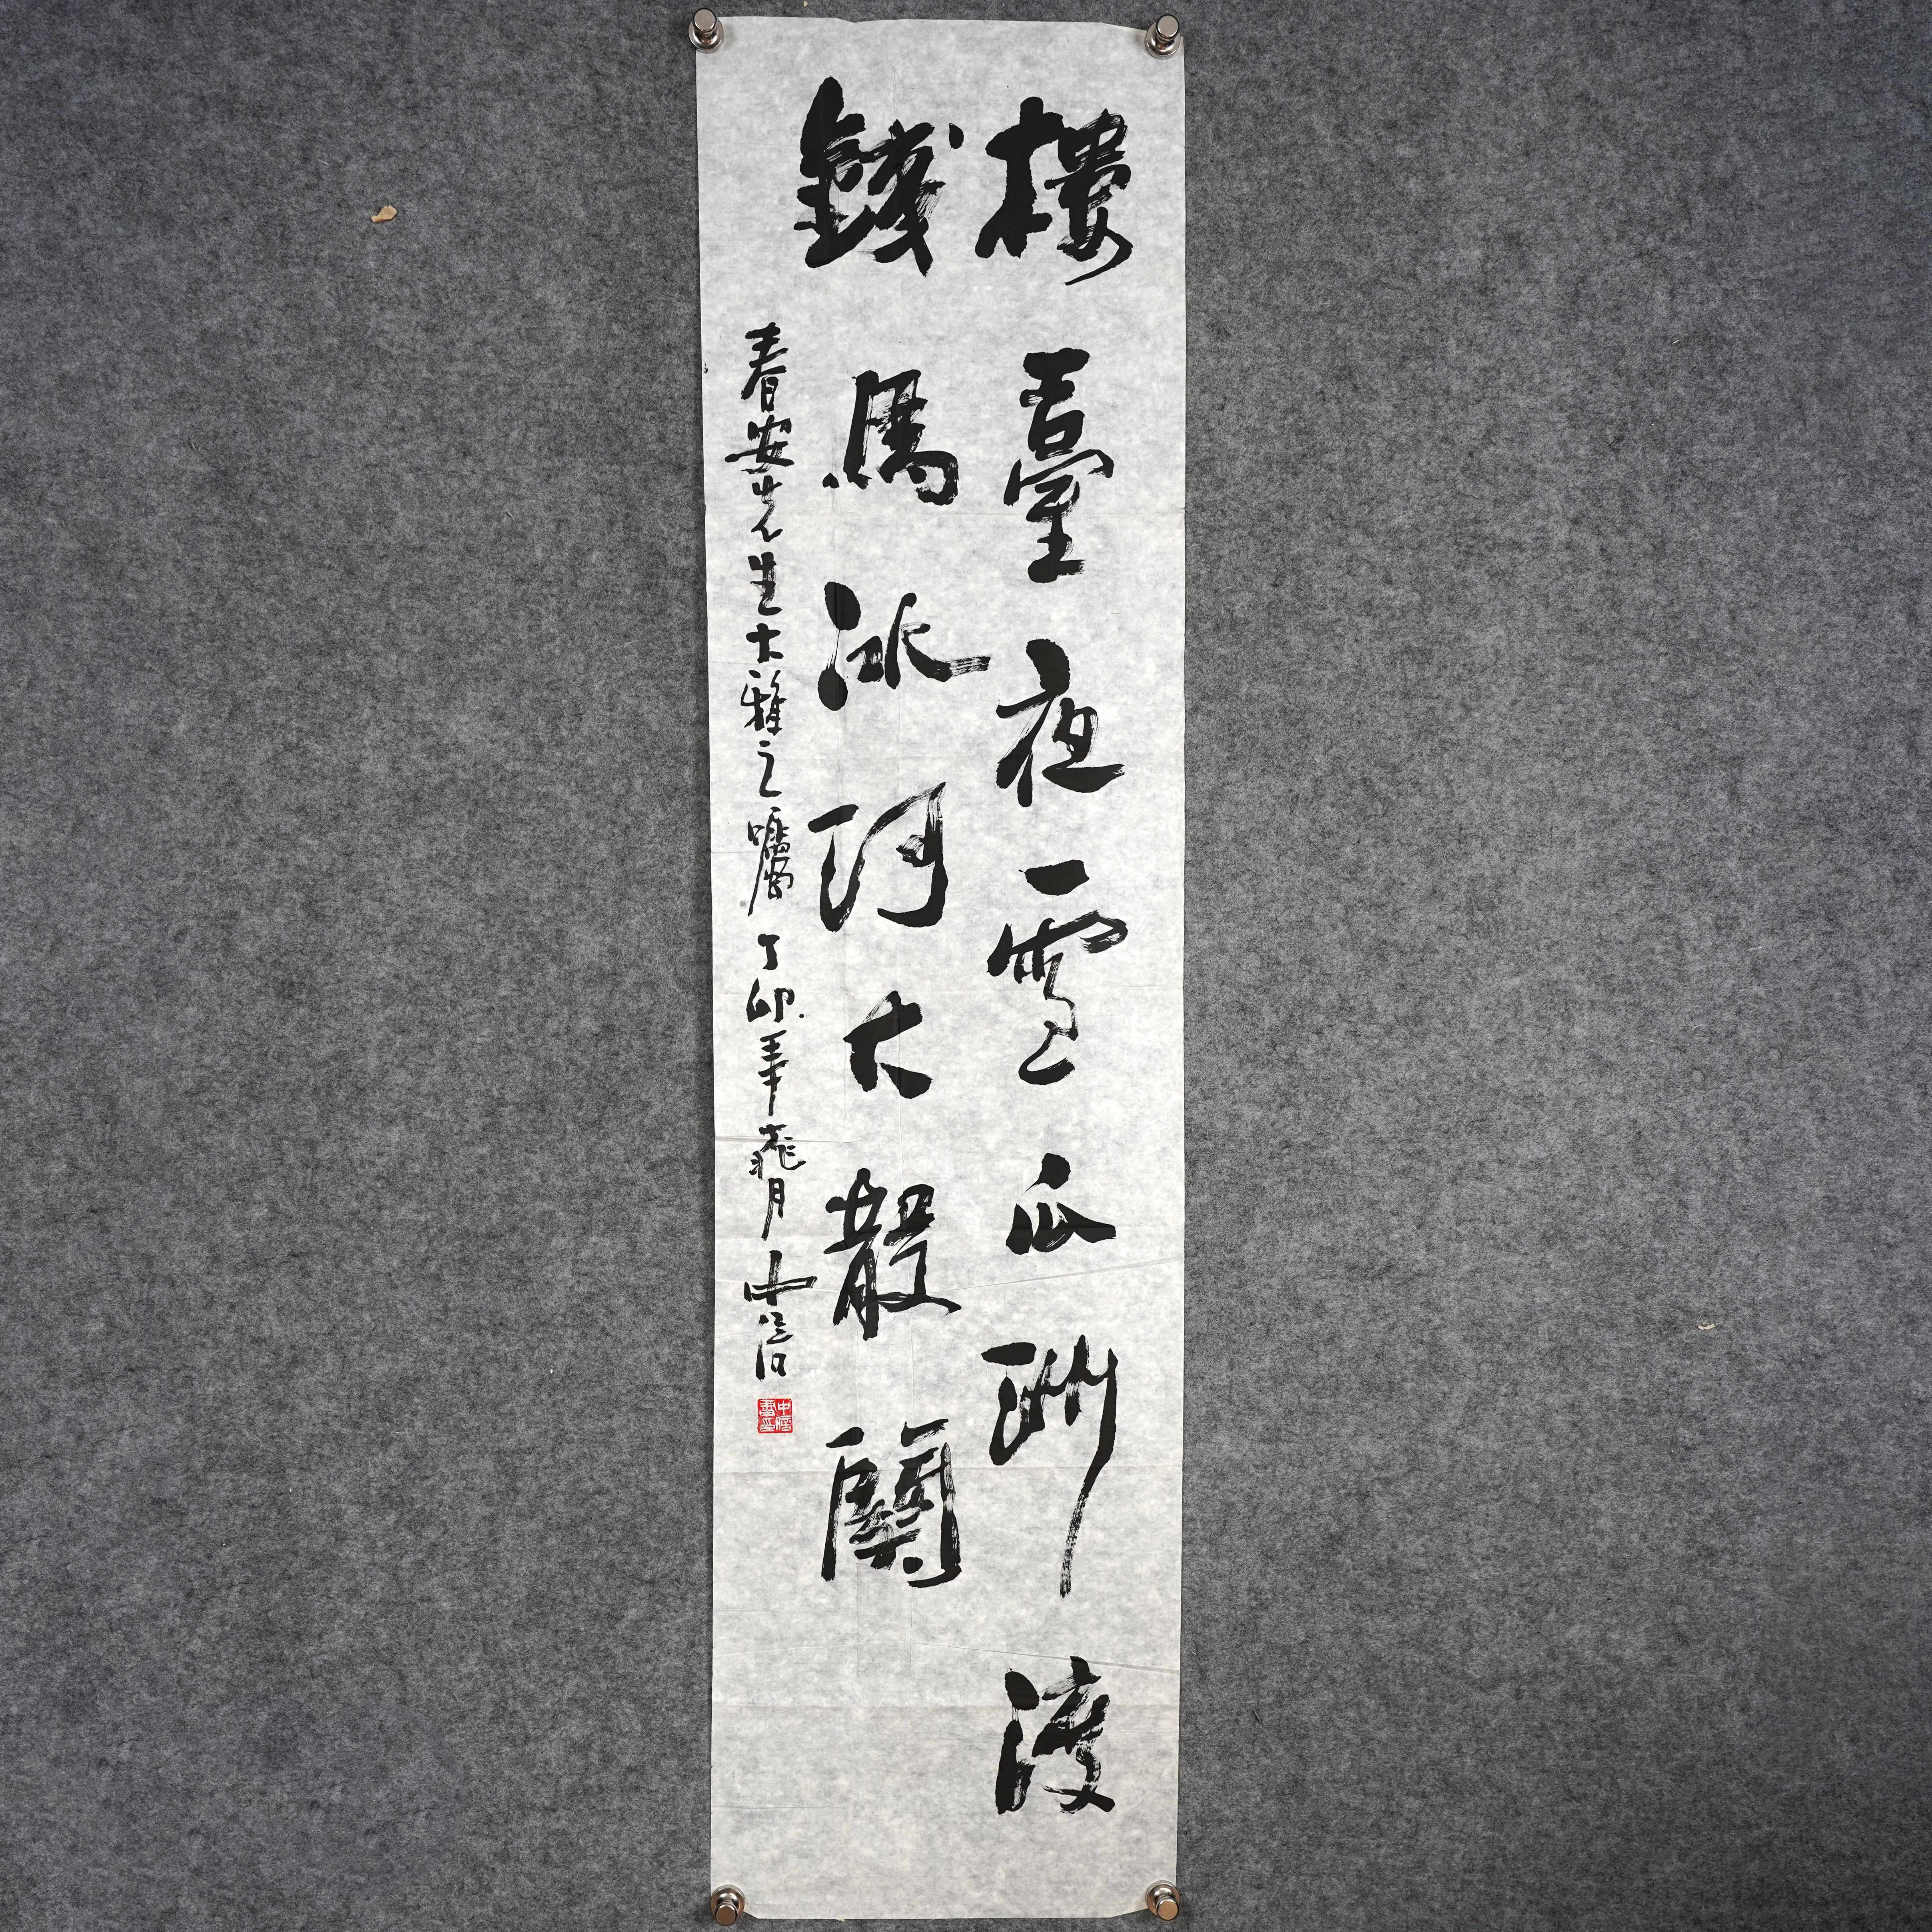 樓臺夜雪瓜洲渡
錢馬冰河大散關
春安先生大雅之囑 丁卯年 月 中